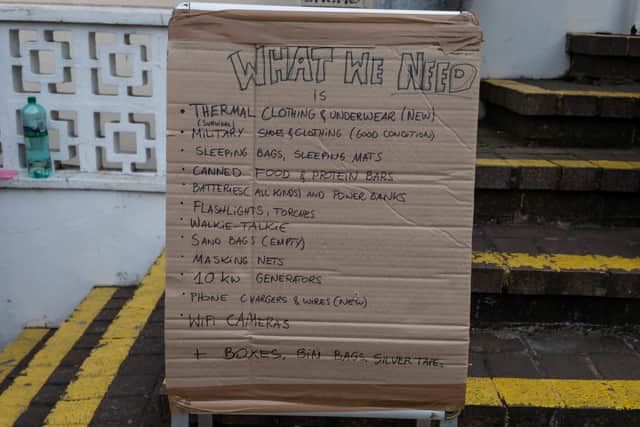 WHAT WE NEED
IS
• THERMAL CLOTHING & UNDERWEAR (NEW)
(SURVIVAL)
• MILITARY SHOES & CLOTHING (GOOD CONDITION)
• SLEEPING BAGS, SLEEPING MATS
• CANNED FOOD & PROTEIN BARS
• BATTERIES (ALL KINDS) AND POWER BANKS
• FLASHLIGHTS, TORCHES
• WALKIE-TALKIE
• SAND BAGS (EMPTY)
• MASKING NETS
• 10 KW GENERATORS
• PHONE CHARGERS & WIRES (NEW)
• WIFI CAMERAS
+ BOXES, BIN BAGS, SILVER TAPE.